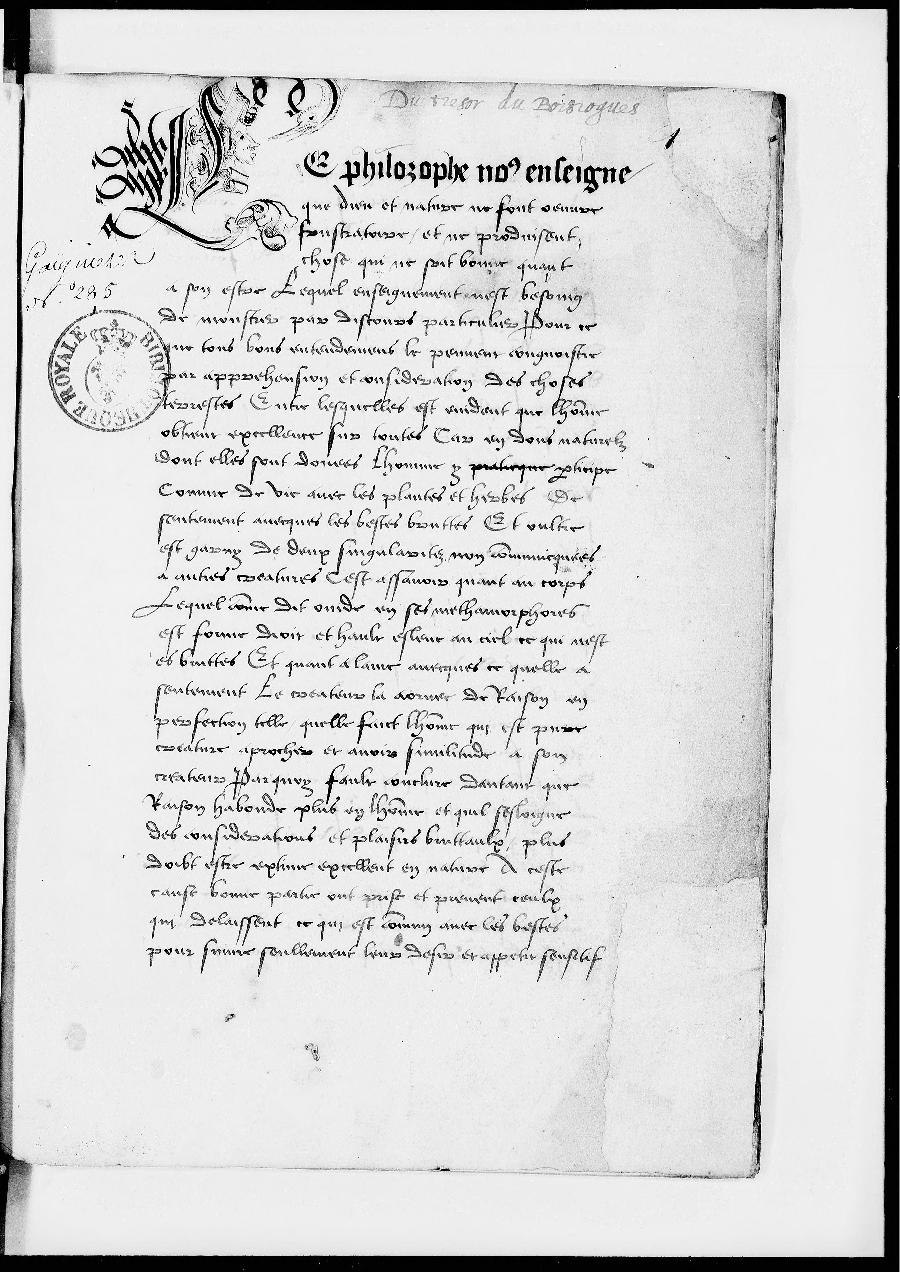 Du tresor du Boisrogues
1
LE philozophe noꝯ enseigne
que dieu et nature ne font oeuure
frustratoire / et ne produisent
chose qui ne soit bonne quant
a son estre Lequel enseignement nest besoing
Gaignieres
n.º 285
de monstrer par discours particulier Pour ce
que tous bons entendemens le peuuent congnoistre
BIBLIOTHEQUE ROYALE
par apprehension et consideration des choses
terrestes Entre lesquelles est euident que lhõme
obtient excellence sur toutes Car en dons naturelz
dont elles sont douees Lhomme y praticque ꝑticipe
Comme de vie auec les plantes et herbes De
sentement auecques les bestes bruttes Et oultre
est garny de deux singularitez non cõmunicquees
a autres creatures Cest assauoir quant au corps
Lequel cõme dit ouide en ses methamorphores
est forme droit et hault esleue au ciel ce qui nest
es bruttes Et quant a lame auecques ce quelle a
sentement Le createur la aornee de Raison en
perfection telle quelle faict lhõme qui est pure
creature aprocher et auoir similitude a son
createur Parquoy fault conclure dautant que
Raison habonde plus en lhõme et quil sesloigne
des considerations et plaisirs bruttaulx / plus
doibt estre extime excellent en nature A ceste
cause bonne partie ont prise et prenent ceulx
qui delaissent ce qui est cõmun auec les bestes
pour suiuir seullement leur desir et appetit sensitif